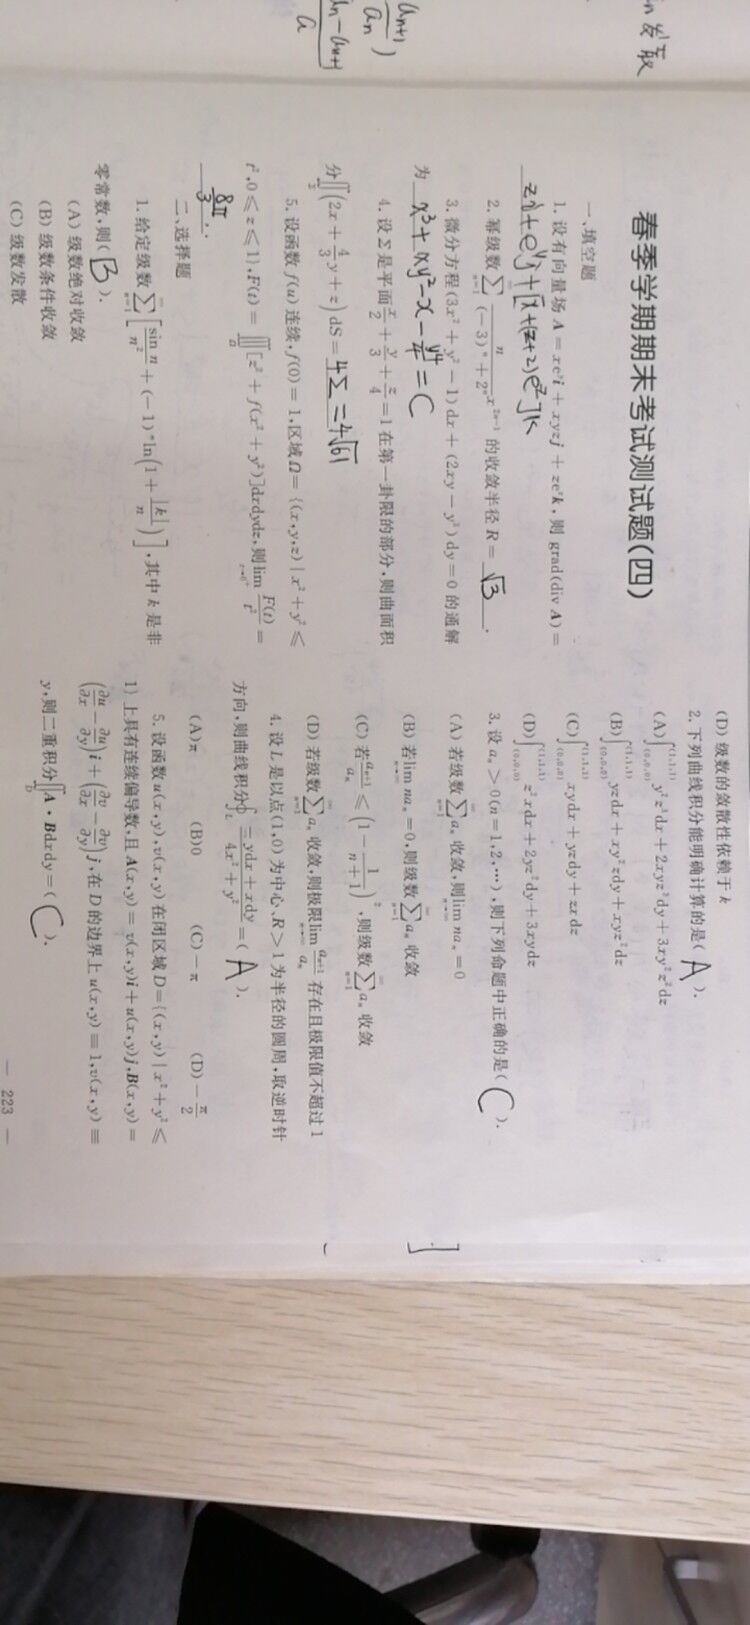 n发散
a_{n+1}
a_n
)
a_n-a_{n+1}
a
春季学期期末考试测试题(四)
一、填空题
1. 设有向量场 A = xe^y i + xyzj + ze^z k,则 grad(div A) =
zi+e^y j+[x+(z+2)e^z]k
2. 幂级数∑_{n=1}^∞ n/((-3)^n+2^n) x^{2n-1} 的收敛半径 R = √3 .
3. 微分方程(3x²+y²-1)dx+(2xy-y³)dy=0 的通解
为 x³+xy²-x-y⁴/4=C
4. 设Σ是平面x/2+y/3+z/4=1在第一卦限的部分,则曲面积
分∬_Σ(2x+4/3 y+z)dS= 4Σ=4√61
5. 设函数 f(u) 连续,f(0)=1,区域Ω={(x,y,z)|x²+y²≤
t²,0≤z≤1},F(t)=∭_Ω[z²+f(x²+y²)]dxdydz,则lim_{t→0⁺} F(t)/t² =
8π/3 .
二、选择题
1. 给定级数∑_{n=1}^∞[sin n/n²+(-1)^n ln(1+|k|/n)],其中 k 是非
零常数,则( B ).
(A) 级数绝对收敛
(B) 级数条件收敛
(C) 级数发散
(D) 级数的敛散性依赖于 k
2. 下列曲线积分能明确计算的是( A ).
(A)∫_{(0,0,0)}^{(1,1,1)} y²z³dx+2xyz³dy+3xy²z²dz
(B)∫_{(0,0,0)}^{(1,1,1)} yzdx+xy²zdy+xyz²dz
(C)∫_{(0,0,0)}^{(1,1,1)} xydx+yzdy+zxdz
(D)∫_{(0,0,0)}^{(1,1,1)} z²xdx+2yz²dy+3xydz
3. 设 a_n>0(n=1,2,⋯),则下列命题中正确的是( C ).
(A) 若级数∑_{n=1}^∞ a_n 收敛,则lim_{n→∞} na_n=0
(B) 若lim_{n→∞} na_n=0,则级数∑_{n=1}^∞ a_n 收敛
(C) 若a_{n+1}/a_n≤(1-1/(n+1))²,则级数∑_{n=1}^∞ a_n 收敛
(D) 若级数∑_{n=1}^∞ a_n 收敛,则极限lim_{n→∞} a_{n+1}/a_n 存在且极限值不超过 1
4. 设 L 是以点(1,0)为中心、R>1为半径的圆周,取逆时针
方向,则曲线积分∮_L (-ydx+xdy)/(4x²+y²)=( A ).
(A)π (B)0 (C)-π (D)-π/2
5. 设函数 u(x,y),v(x,y)在闭区域 D={(x,y)|x²+y²≤
1}上具有连续偏导数,且 A(x,y)=v(x,y)i+u(x,y)j,B(x,y)=
(∂u/∂x-∂u/∂y)i+(∂v/∂x-∂v/∂y)j,在 D 的边界上 u(x,y)≡1,v(x,y)≡
y,则二重积分∬_D A·Bdxdy=( C ).
— 223 —